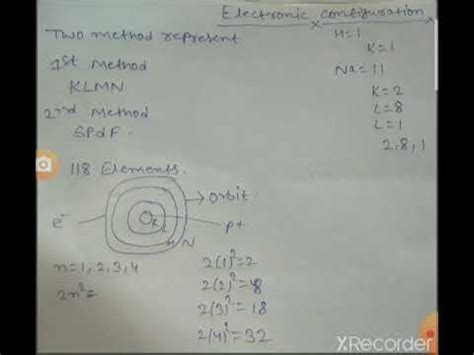 Electronic configuration
Two method represent
1st Method
KLMN
2nd Method
SPdF
H=1
K=1
Na=11
K=2
L=8
L=1
2,8,1
118 Elements.
orbit
e-
p+
K
L
M
N
n=1,2,3,4
2n²=
2(1)²=2
2(2)²=8
2(3)²=18
2(4)²=32
XRecorder